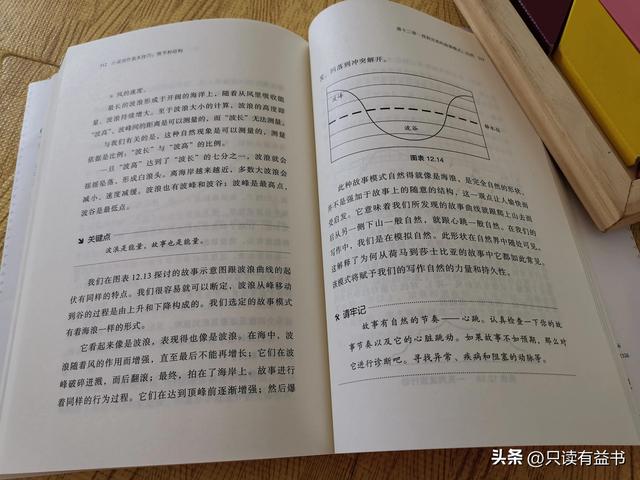 312 小说创作基本技巧：情节和结构
■ 风的速度。
最长的波浪形成于开阔的海洋上，随着从风里吸收能
量，波浪持续增大。至于波浪大小的计算，波浪的高度即
“波高”、波峰间的距离是可以测量的，而“波长”无法测量。
与我们有关的是，这种自然现象是可以测量的，测量
依据是比例：“波长”与“波高”的比例。
一旦“波高”达到了“波长”的七分之一，波浪就会
摇摇坠落，形成白浪头。离海岸越来越近，多数大波浪会
减小、速度减缓。波浪也有波峰和波谷：波峰是最高点，
波谷是最低点。
关键点
波浪是能量，故事也是能量。
我们在图表 12.13 探讨的故事示意图跟波浪曲线的起
伏有同样的特点。我们很容易就可以断定，波浪从峰移动
到谷的过程是由上升和下降构成的。我们选定的故事模式
有着海浪一样的形式。
它看起来像是波浪，表现得也像是波浪。在海中，波
浪随着风的作用而增强，直至最后不能再增长；它们在波
峰破碎迸溅，而后翻滚；最终，拍在了海岸上。故事进行
着同样的行为过程。它们在达到顶峰前逐渐增强；然后爆
发，回落到冲突解开。
波峰
波谷
静水位
图表 12.14
此种故事模式自然得就像是海浪，是完全自然的形状，
并不是强加于故事上的随意的结构，这一观点让人愉快而
受启发。它意味着我们所发现的故事曲线就跟爬上山去而
后从另一侧下山一般自然，就跟心跳一般自然。在我们的
写作中，我们是在模拟自然。此形状在自然界中随处可见。
这解释了为何从荷马到莎士比亚的故事中它都如此常见。
该模式将赋予我们的写作自然的力量和持久性。
请牢记
故事有自然的节奏——心跳。认真检查一下你的故
事节奏以及它的心脏跳动。如果故事不如预期，那么对
它进行诊断吧。寻找异常、疾病和阻塞的动脉等。
头条 @只读有益书